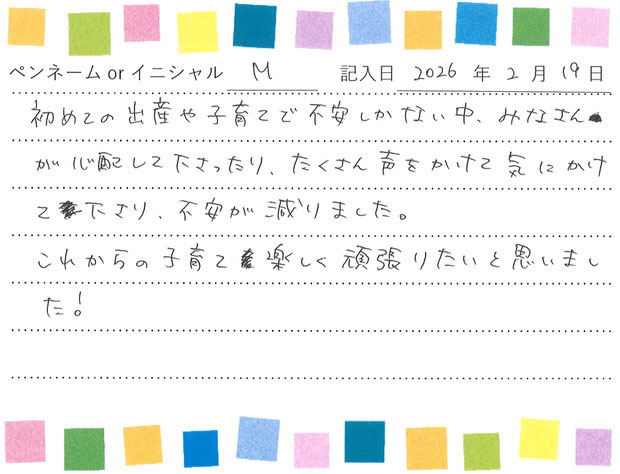 ペンネーム or イニシャル M 記入日 2026 年 2 月 19 日
初めての出産や子育てで不安しかない中、みなさん
が心配して下さったり、たくさん声をかけて気にかけ
て下さり、不安が減りました。
これからの子育て楽しく頑張りたいと思いまし
た!